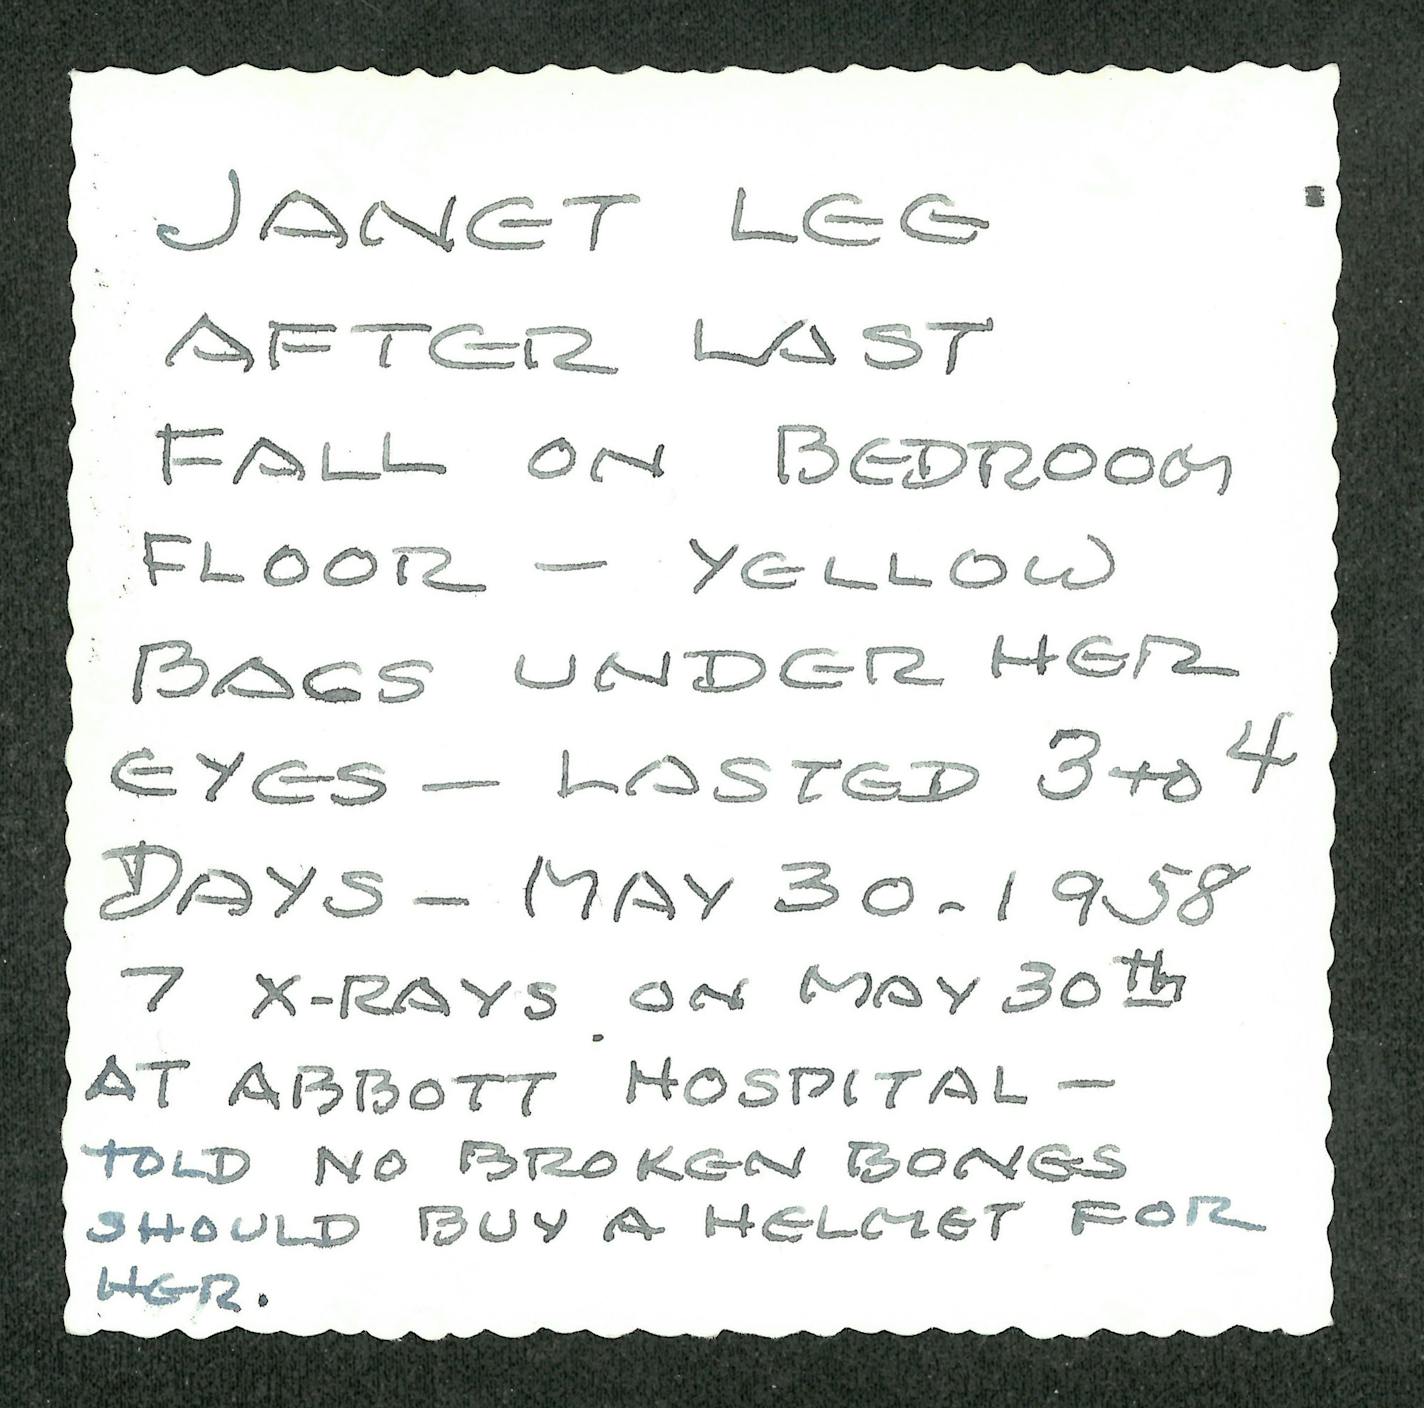 JANET LEE
AFTER LAST
FALL ON BEDROOM
FLOOR — YELLOW
BAGS UNDER HER
EYES — LASTED 3 to 4
DAYS — MAY 30 - 1958
7 X-RAYS ON MAY 30th
AT ABBOTT HOSPITAL —
TOLD NO BROKEN BONES
SHOULD BUY A HELMET FOR
HER.